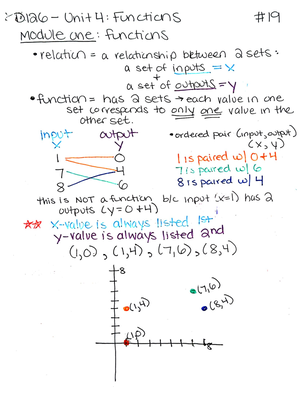 D126 - Unit 4: Functions #19
Module one: functions
• relation = a relationship between 2 sets:
a set of inputs = x
+
a set of outputs = y
• function = has 2 sets → each value in one
set corresponds to only one value in the
other set.
input output • ordered pair (input, output)
X y (x, y)
1 0 1 is paired w/ 0 + 4
7 4 7 is paired w/ 6
8 6 8 is paired w/ 4
this is NOT a function b/c input (x=1) has 2
outputs (y = 0 + 4)
☆☆ X-value is always listed 1st
y-value is always listed 2nd
(1,0), (1,4), (7,6), (8,4)
8
(7,6)
(1,4) (8,4)
(1,0)
8